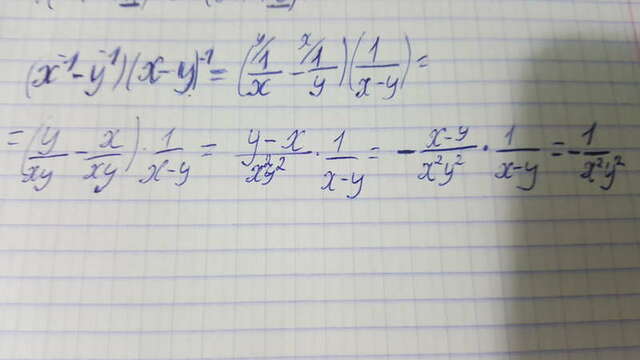 (x⁻¹ - y⁻¹)(x - y)⁻¹ = (ʸ⁄ 1/x - ˣ⁄ 1/y)(1/(x-y)) =
= (y/xy - x/xy) · 1/(x-y) = (y-x)/(x²y²) · 1/(x-y) = - (x-y)/(x²y²) · 1/(x-y) = - 1/(x²y²)